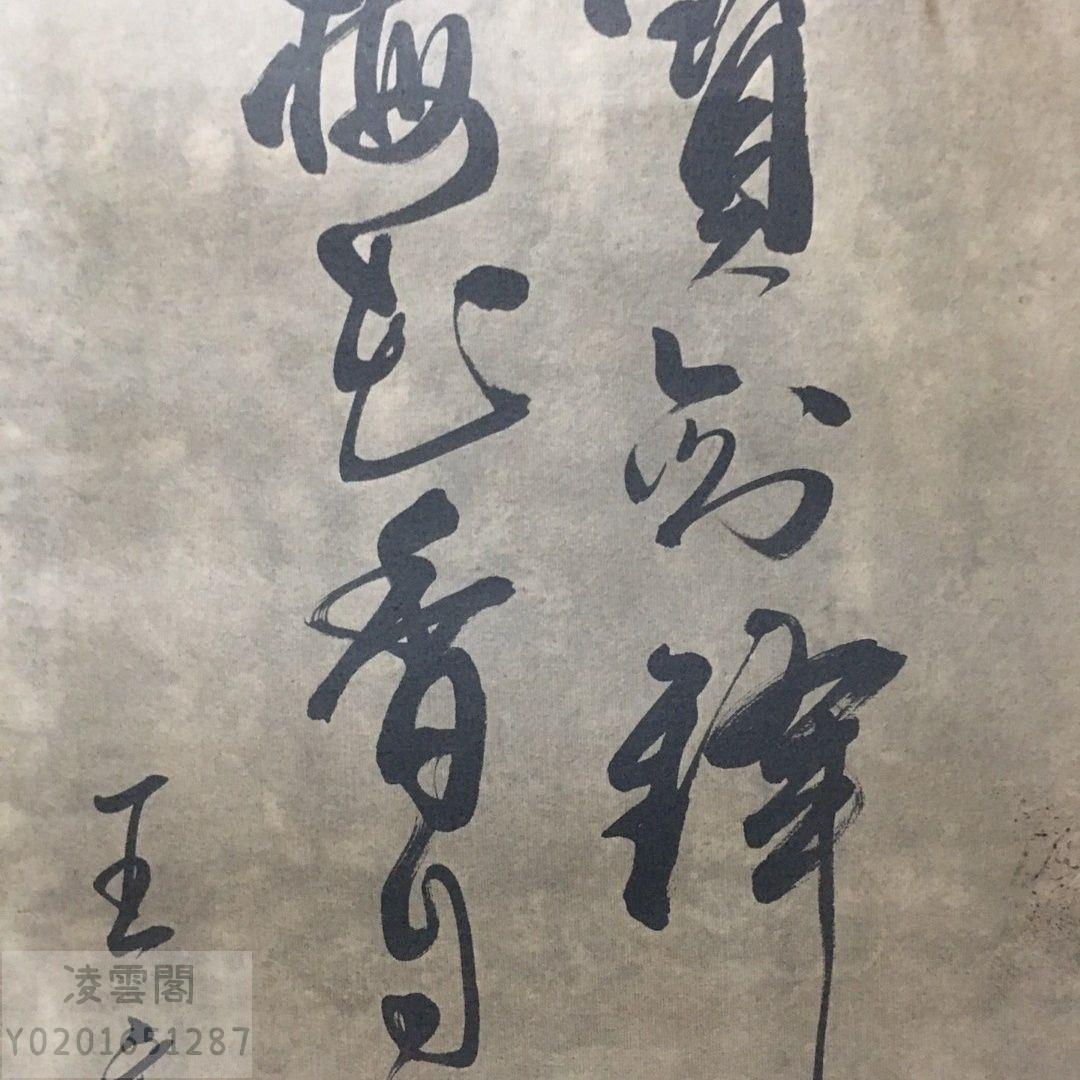 寶劍鋒
梅花香自
王
凌雲閣
Y0201651287